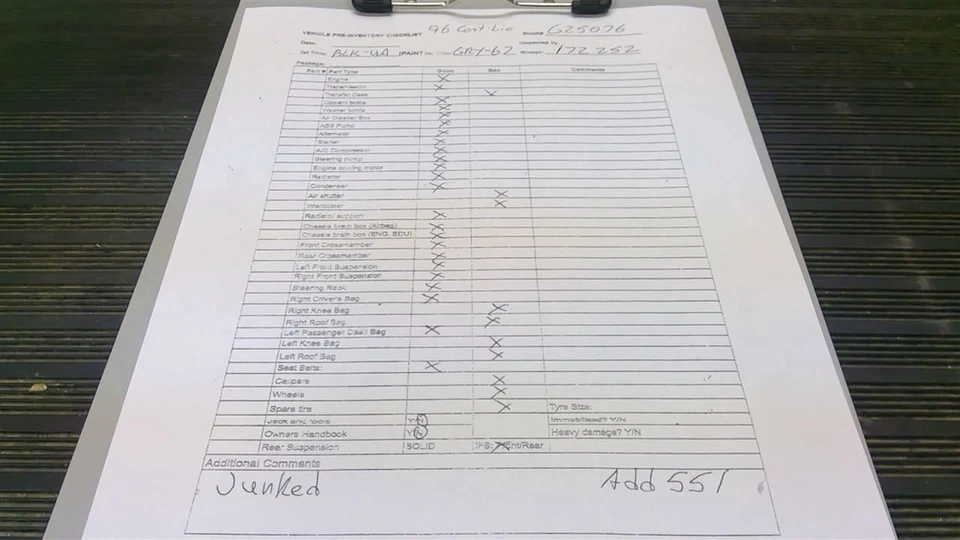 VEHICLE PRE-INVENTORY CHECKLIST 96 Cont-Lic Stock# G25076
Date: Inspected by:
Int Trim: BLK-UA (PAINT GRY-62 Mileage: 172 252
Passage:
Part # Part Type Good Bad Comments
Engine X
Transmission X
Transfer Case X
Coolant bottle X
Washer bottle X
Air Cleaner Box X
ABS Pump X
Alternator X
Starter X
A/C Compressor X
Steering pump X
Engine cooling motor X
Radiator X
Condenser X
Air shutter X
Intercooler X
Radiator support X
Chassis brain box (Airbag) X
Chassis brain box (ENG. ECU) X
Front Crossmember X
Rear Crossmember X
Left Front Suspension X
Right Front Suspension X
Steering Rack X
Right Driver's Bag X
Right Knee Bag X
Right Roof Bag X
Left Passenger Dash Bag X
Left Knee Bag X
Left Roof Bag X
Seat Belts: X
Calipers X
Wheels X
Spare tire X Tyre Size:
Jack and tools Y/N Immobilised? Y/N
Owners Handbook Y/N Heavy damage? Y/N
Rear Suspension SOLID IRS: X Front/Rear
Additional Comments
Junked Add 551